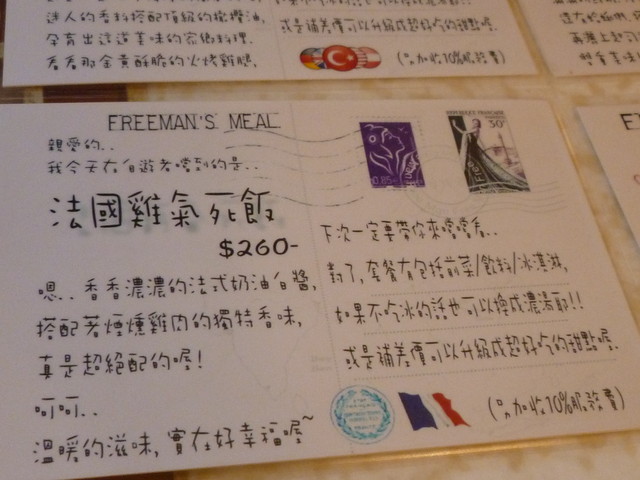 迷人的香料搭配頂級的橄欖油,
孕育出這道美味的家鄉料理.
看看那金黃酥脆的火烤雞腿,
或是補差價可以升級成超好吃的甜點喔.
(加收10%服務費)
FREEMAN'S MEAL
親愛的..
我今天在自遊者嚐到的是..
法國雞氣死飯
$260-
嗯..香香濃濃的法式奶油白醬,
搭配著煙燻雞肉的獨特香味,
真是超絕配的喔!
呵呵..
溫暖的滋味,實在好幸福喔~
0.85
REPUBLIQUE FRANÇAISE
30
下次一定要帶你來嚐嚐看..
對了,套餐有包括前菜/飲料/冰淇淋,
如果不吃冰的話也可以換成濃湯耶!!
或是補差價可以升級成超好吃的甜點喔.
(加收10%服務費)